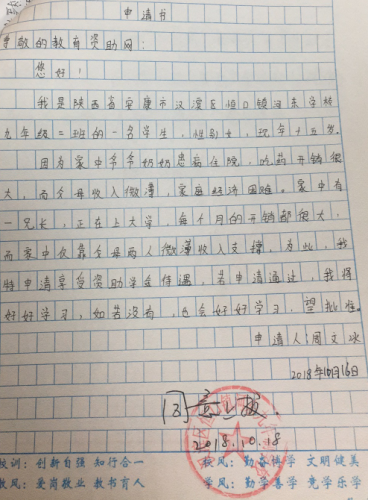 申请书
尊敬的教育资助网:
您好!
我是陕西省安康市汉滨区恒口镇河东学校
九年级二班的一名学生,性别女,现年十五岁。
因为家中爷爷奶奶患病住院,吃药开销很
大,而父母收入微薄,家庭经济困难。家中有
一兄长,正在上大学,每个月的开销都很大,
而家中仅靠父母两人微薄收入支撑,为此,我
特申请享受资助学金待遇,若申请通过,我将
好好学习,如若没有,也会好好学习,望批准。
申请人:周文
2018年10月16日
2018.10.18
校训:创新自强 知行合一
校风:勤奋博学 文明健美
教风:爱岗敬业 教书育人
学风:勤学善学 竞学乐学